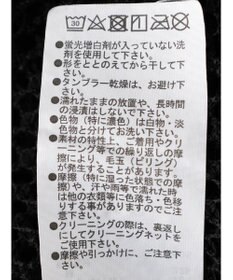 ●蛍光増白剤が入っていない洗
剤を使用して下さい。
●形をととのえてから干して下
さい。
●タンブラー乾燥は、お避け下
さい。
●濡れたままの放置や、長時間
の浸漬はしないで下さい。
●色物（特に濃色）は白物、淡
色物と分けてお洗い下さい。
●素材の特性上、ご着用やクリ
ーニング等での繰り返しの摩
擦により、毛玉（ピリング）
が発生することがあります。
●摩擦（特に湿った状態での摩
擦）や、汗や雨等で濡れた時
は他の衣類等に色落ち・色移
りする事がありますのでご注
意下さい。
●クリーニングの際は、裏返し
にしてクリーニングネットを
ご使用下さい。
●摩擦や引っかけに、ご注意下
さい。